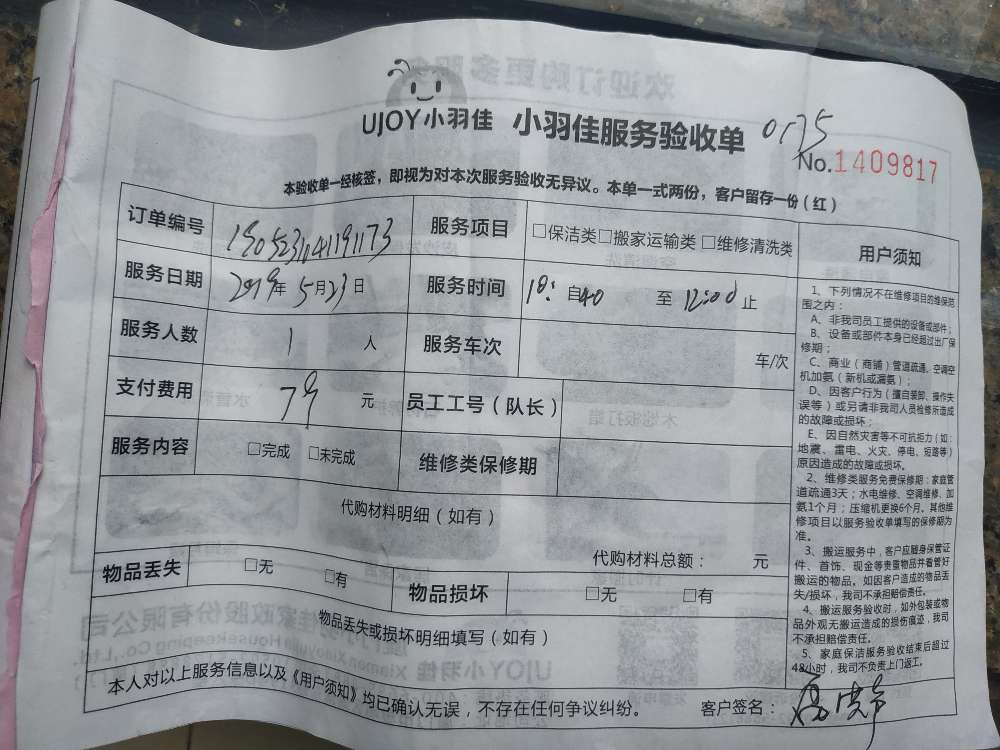 UJOY小羽佳 小羽佳服务验收单 0175
No.1409817
本验收单一经核签，即视为对本次服务验收无异议。本单一式两份，客户留存一份（红）
订单编号 服务项目 □保洁类□搬家运输类 □维修清洗类
服务日期 2019年 5月23日 服务时间 自 40 至 12:00止
服务人数 1 人 服务车次 车/次
支付费用 79 元 员工工号（队长）
服务内容 □完成 □未完成 维修类保修期
代购材料明细（如有）
代购材料总额： 元
物品丢失 □无 □有 物品损坏 □无 □有
物品丢失或损坏明细填写（如有）
本人对以上服务信息以及《用户须知》均已确认无误，不存在任何争议纠纷。 客户签名：
用户须知
1、下列情况不在维修项目的维保范
围之内：
A、非我司员工提供的设备或部件；
B、设备或部件本身已经超过出厂保
修期；
C、商业（商铺）管道疏通、空调空
机加氨（新机或漏氨）；
D、因客户行为（擅自装卸、操作失
误等）或另请非我司人员检修所造成
的故障或损坏；
E、因自然灾害等不可抗拒力（如：
地震、雷电、火灾、停电、短路等）
原因造成的故障或损坏。
2、维修类服务免费保修期：家庭管
道疏通3天；水电维修、空调维修、加
氨1个月；压缩机更换6个月、其他维
修项目以服务验收单填写的保修期为
准。
3、搬运服务中，客户应随身保管证
件、首饰、现金等贵重物品并看管好
搬运的物品。如因客户造成的物品丢
失/损坏，我司不承担赔偿责任。
4、搬运服务验收时，如外包装或物
品外观无搬运造成的损伤痕迹，我司
不承担赔偿责任。
5、家庭保洁服务验收结束后超过
48小时，我司不负责上门返工。